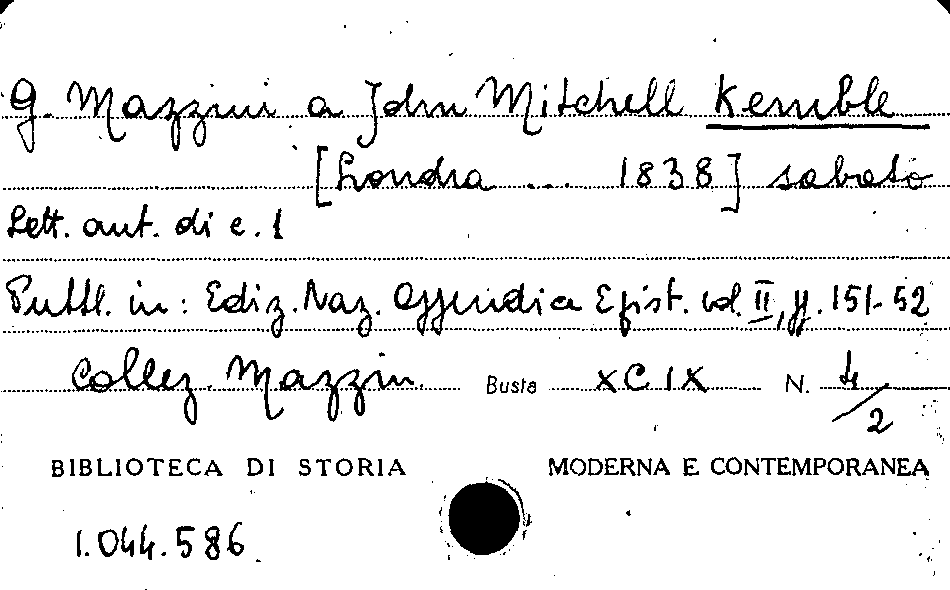 G. Mazzini a John Mitchell Kemble
[Londra ... 1838] sabato
Lett. aut. di c. 1
Pubbl. in: Ediz. Naz. Appendice Epist. vol. II, pp. 151-52
Collez. Mazzin. Busta XCIX N. 4/2
BIBLIOTECA DI STORIA MODERNA E CONTEMPORANEA
1.044.586